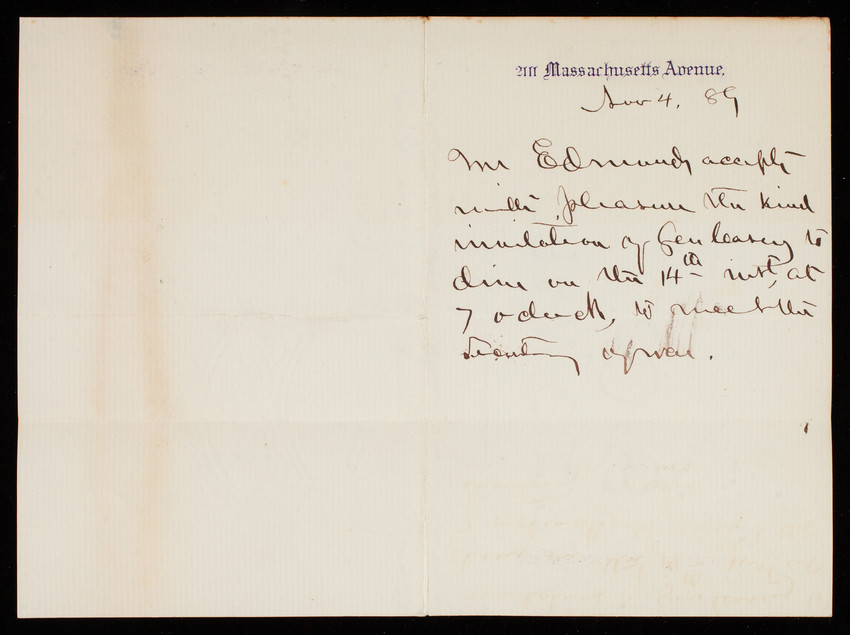 Massachusetts Avenue.
Nov 4, 89
Mr Edmunds accepts
with pleasure the kind
invitation of Gen Casey to
dine on the 14th inst, at
7 o'clock, to meet the
Secretary of War.